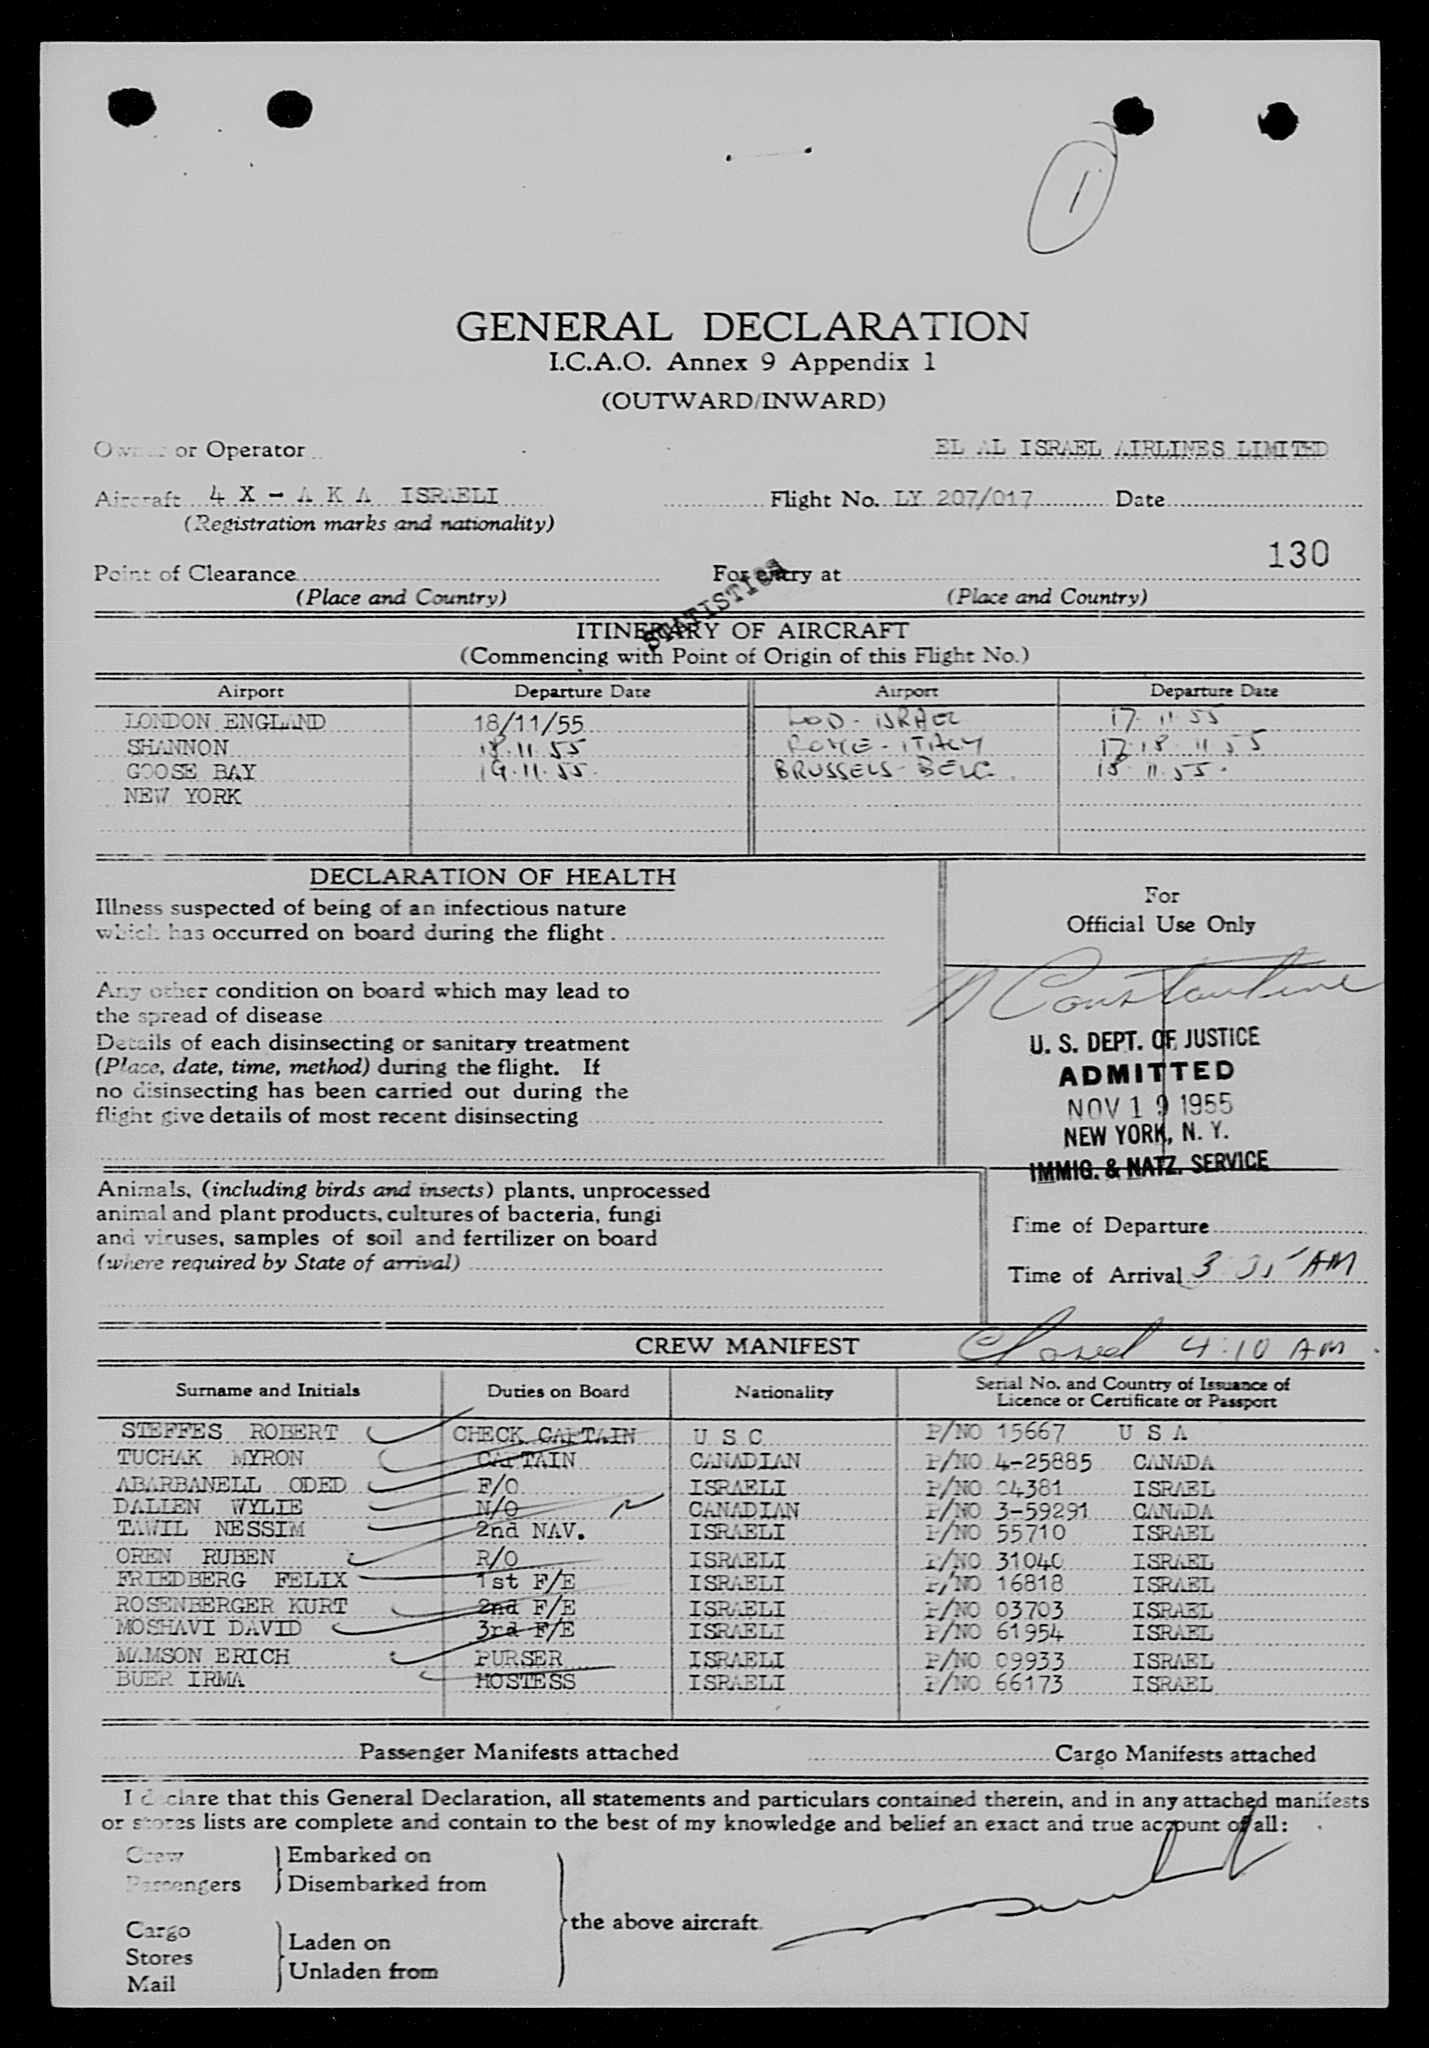 1
GENERAL DECLARATION
I.C.A.O. Annex 9 Appendix 1
(OUTWARD/INWARD)
Owner or Operator EL AL ISRAEL AIRLINES LIMITED
Aircraft 4 X - A K A ISRAELI Flight No. LY 207/017 Date
(Registration marks and nationality)
130
Point of Clearance For entry at
(Place and Country) (Place and Country)
STATISTICS
ITINERARY OF AIRCRAFT
(Commencing with Point of Origin of this Flight No.)
Airport Departure Date Airport Departure Date
LONDON ENGLAND 18/11/55 LOD - ISRAEL 17. 11. 55
SHANNON 18.11.55 ROME - ITALY 17.18.11.55
GOOSE BAY 19.11.55. BRUSSELS - BELG. 18.11.55.
NEW YORK
DECLARATION OF HEALTH
Illness suspected of being of an infectious nature
which has occurred on board during the flight
Any other condition on board which may lead to
the spread of disease
Details of each disinsecting or sanitary treatment
(Place, date, time, method) during the flight. If
no disinsecting has been carried out during the
flight give details of most recent disinsecting
For
Official Use Only
Constantine
U. S. DEPT. OF JUSTICE
ADMITTED
NOV 19 1955
NEW YORK, N. Y.
IMMIG. & NATZ. SERVICE
Animals, (including birds and insects) plants, unprocessed
animal and plant products, cultures of bacteria, fungi
and viruses, samples of soil and fertilizer on board
(where required by State of arrival)
Time of Departure
Time of Arrival AM
CREW MANIFEST Closed 4:10 AM
Surname and Initials Duties on Board Nationality Serial No. and Country of Issuance of
Licence or Certificate or Passport
STEFFES ROBERT CHECK CAPTAIN U S C P/NO 15667 U S A
TUCHAK MYRON CAPTAIN CANADIAN P/NO 4-25885 CANADA
ABARBANELL ODED F/O ISRAELI P/NO 04381 ISRAEL
DALLEN WYLIE N/O CANADIAN P/NO 3-59291 CANADA
TAWIL NESSIM 2nd NAV. ISRAELI P/NO 55710 ISRAEL
OREN RUBEN R/O ISRAELI P/NO 31040 ISRAEL
FRIEDBERG FELIX 1st F/E ISRAELI P/NO 16818 ISRAEL
ROSENBERGER KURT 2nd F/E ISRAELI P/NO 03703 ISRAEL
MOSHAVI DAVID 3rd F/E ISRAELI P/NO 61954 ISRAEL
MAMSON ERICH PURSER ISRAELI P/NO 09933 ISRAEL
BUER IRMA HOSTESS ISRAELI P/NO 66173 ISRAEL
Passenger Manifests attached Cargo Manifests attached
I declare that this General Declaration, all statements and particulars contained therein, and in any attached manifests
or stores lists are complete and contain to the best of my knowledge and belief an exact and true account of all:
Crew Embarked on
Passengers Disembarked from
the above aircraft.
Cargo
Stores Laden on
Mail Unladen from